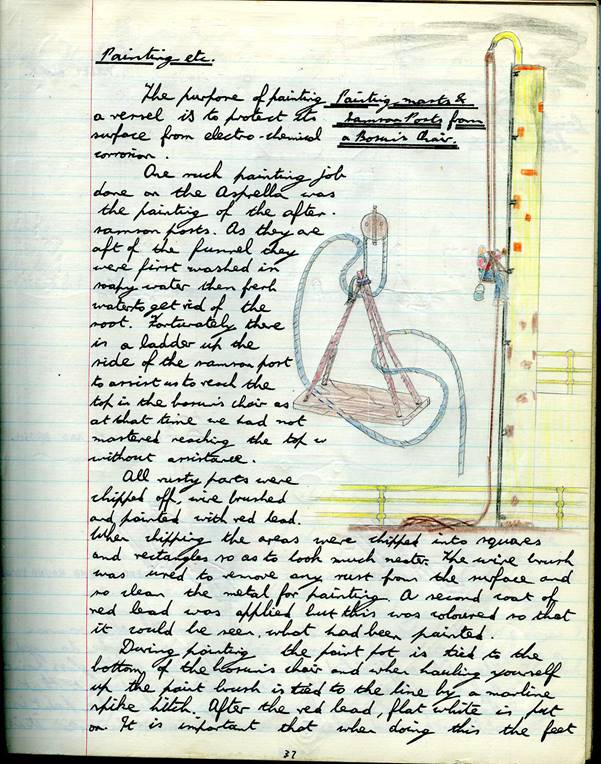 Painting etc.
The purpose of painting
a vessel is to protect its
surface from electro-chemical
corrosion.
Painting masts &
Samson Posts from
a Bosun's Chair.
One such painting job
done on the Asprella was
the painting of the after-
samson posts. As they are
aft of the funnel they
were first washed in
soapy water then fresh
water to get rid of the
soot. Fortunately there
is a ladder up the
side of the samson post
to assist us to reach the
top in the bosun's chair as
at that time we had not
mastered reaching the top
without assistance.
All rusty parts were
chipped off, wire brushed
and painted with red lead.
When chipping the areas were chipped into squares
and rectangles so as to look much neater. The wire brush
was used to remove any rust from the surface and
so clean the metal for painting. A second coat of
red lead was applied but this was coloured so that
it could be seen, what had been painted.
During painting the paint pot is tied to the
bottom of the bosun's chair and when hauling yourself
up the paint brush is tied to the line by a marline
spike hitch. After the red lead, flat white is put
on. It is important that when doing this the feet
37